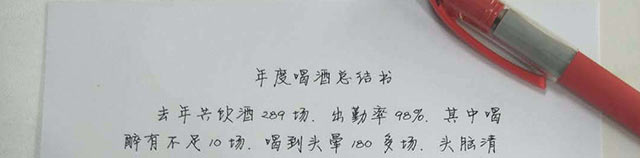 年度喝酒总结书
去年共饮酒289场，出勤率98%，其中喝
醉有不足10场，喝到头晕180多场，头脑清